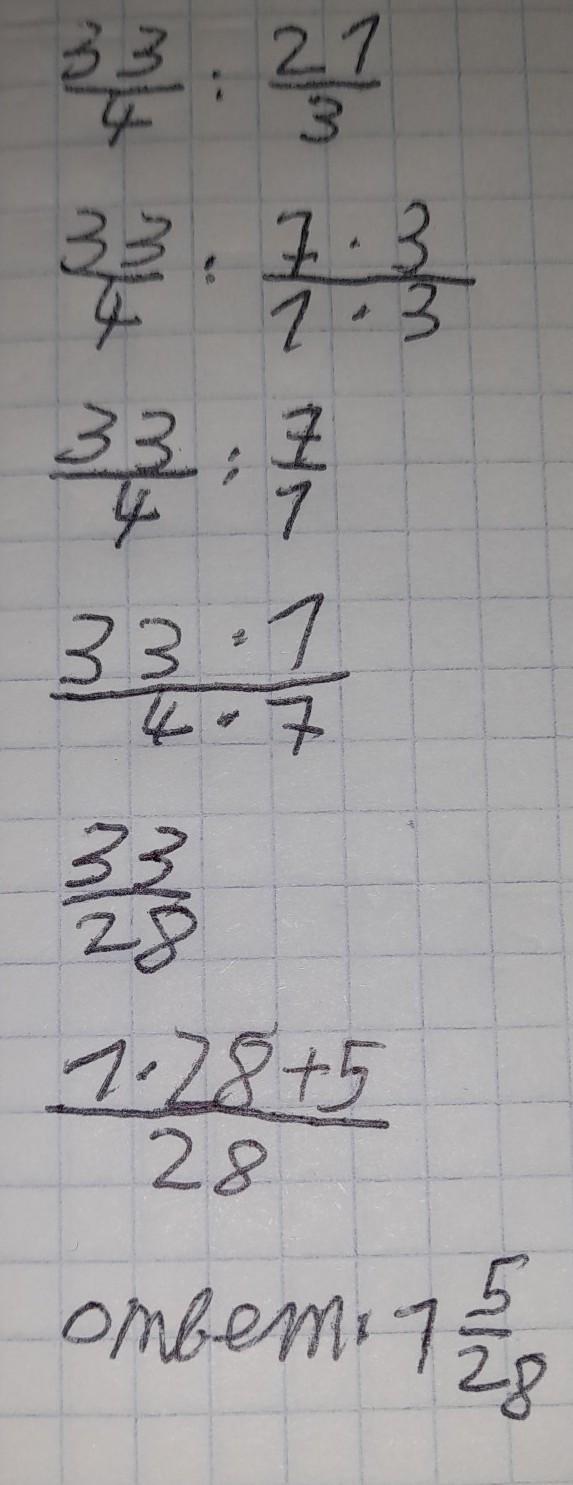 33/4 : 21/3
33/4 : 7·3/1·3
33/4 : 7/1
33·1/4·7
33/28
1·28+5/28
ответ: 1 5/28